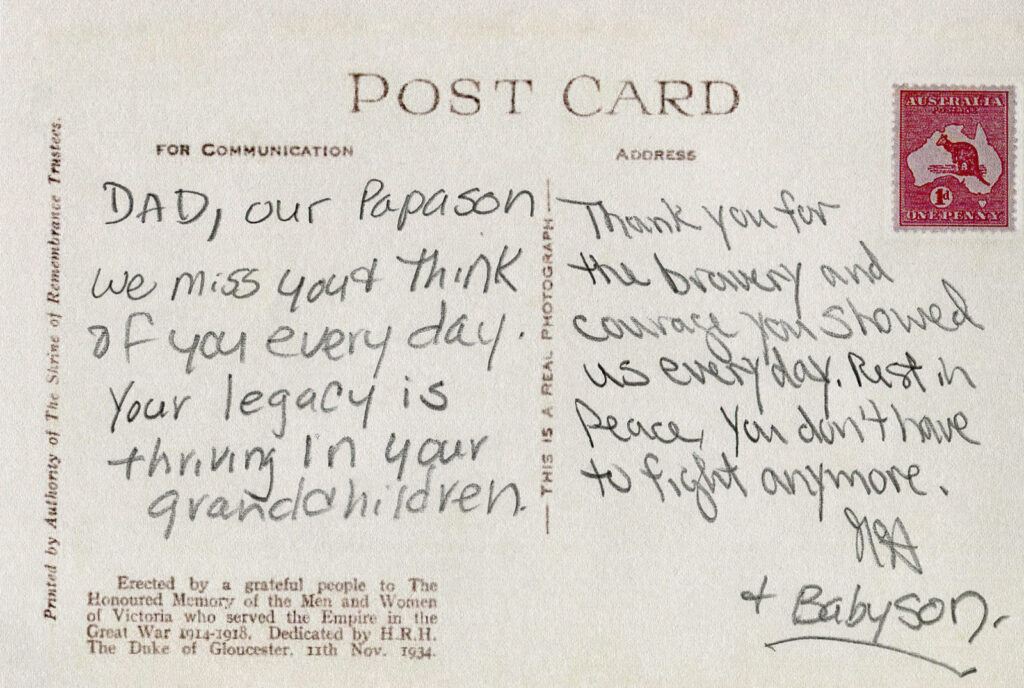 POST CARD
FOR COMMUNICATION
ADDRESS
AUSTRALIA
POSTAGE
1d
ONE PENNY
DAD, our Papason
we miss you + think
of you every day.
Your legacy is
thriving in your
grandchildren.
Thank you for
the bravery and
courage you showed
us everyday. Rest in
Peace, you don't have
to fight anymore.
+ Babyson.
THIS IS A REAL PHOTOGRAPH
Printed by Authority of The Shrine of Remembrance Trustees.
Erected by a grateful people to The
Honoured Memory of the Men and Women
of Victoria who served the Empire in the
Great War 1914-1918. Dedicated by H.R.H.
The Duke of Gloucester. 11th Nov. 1934.